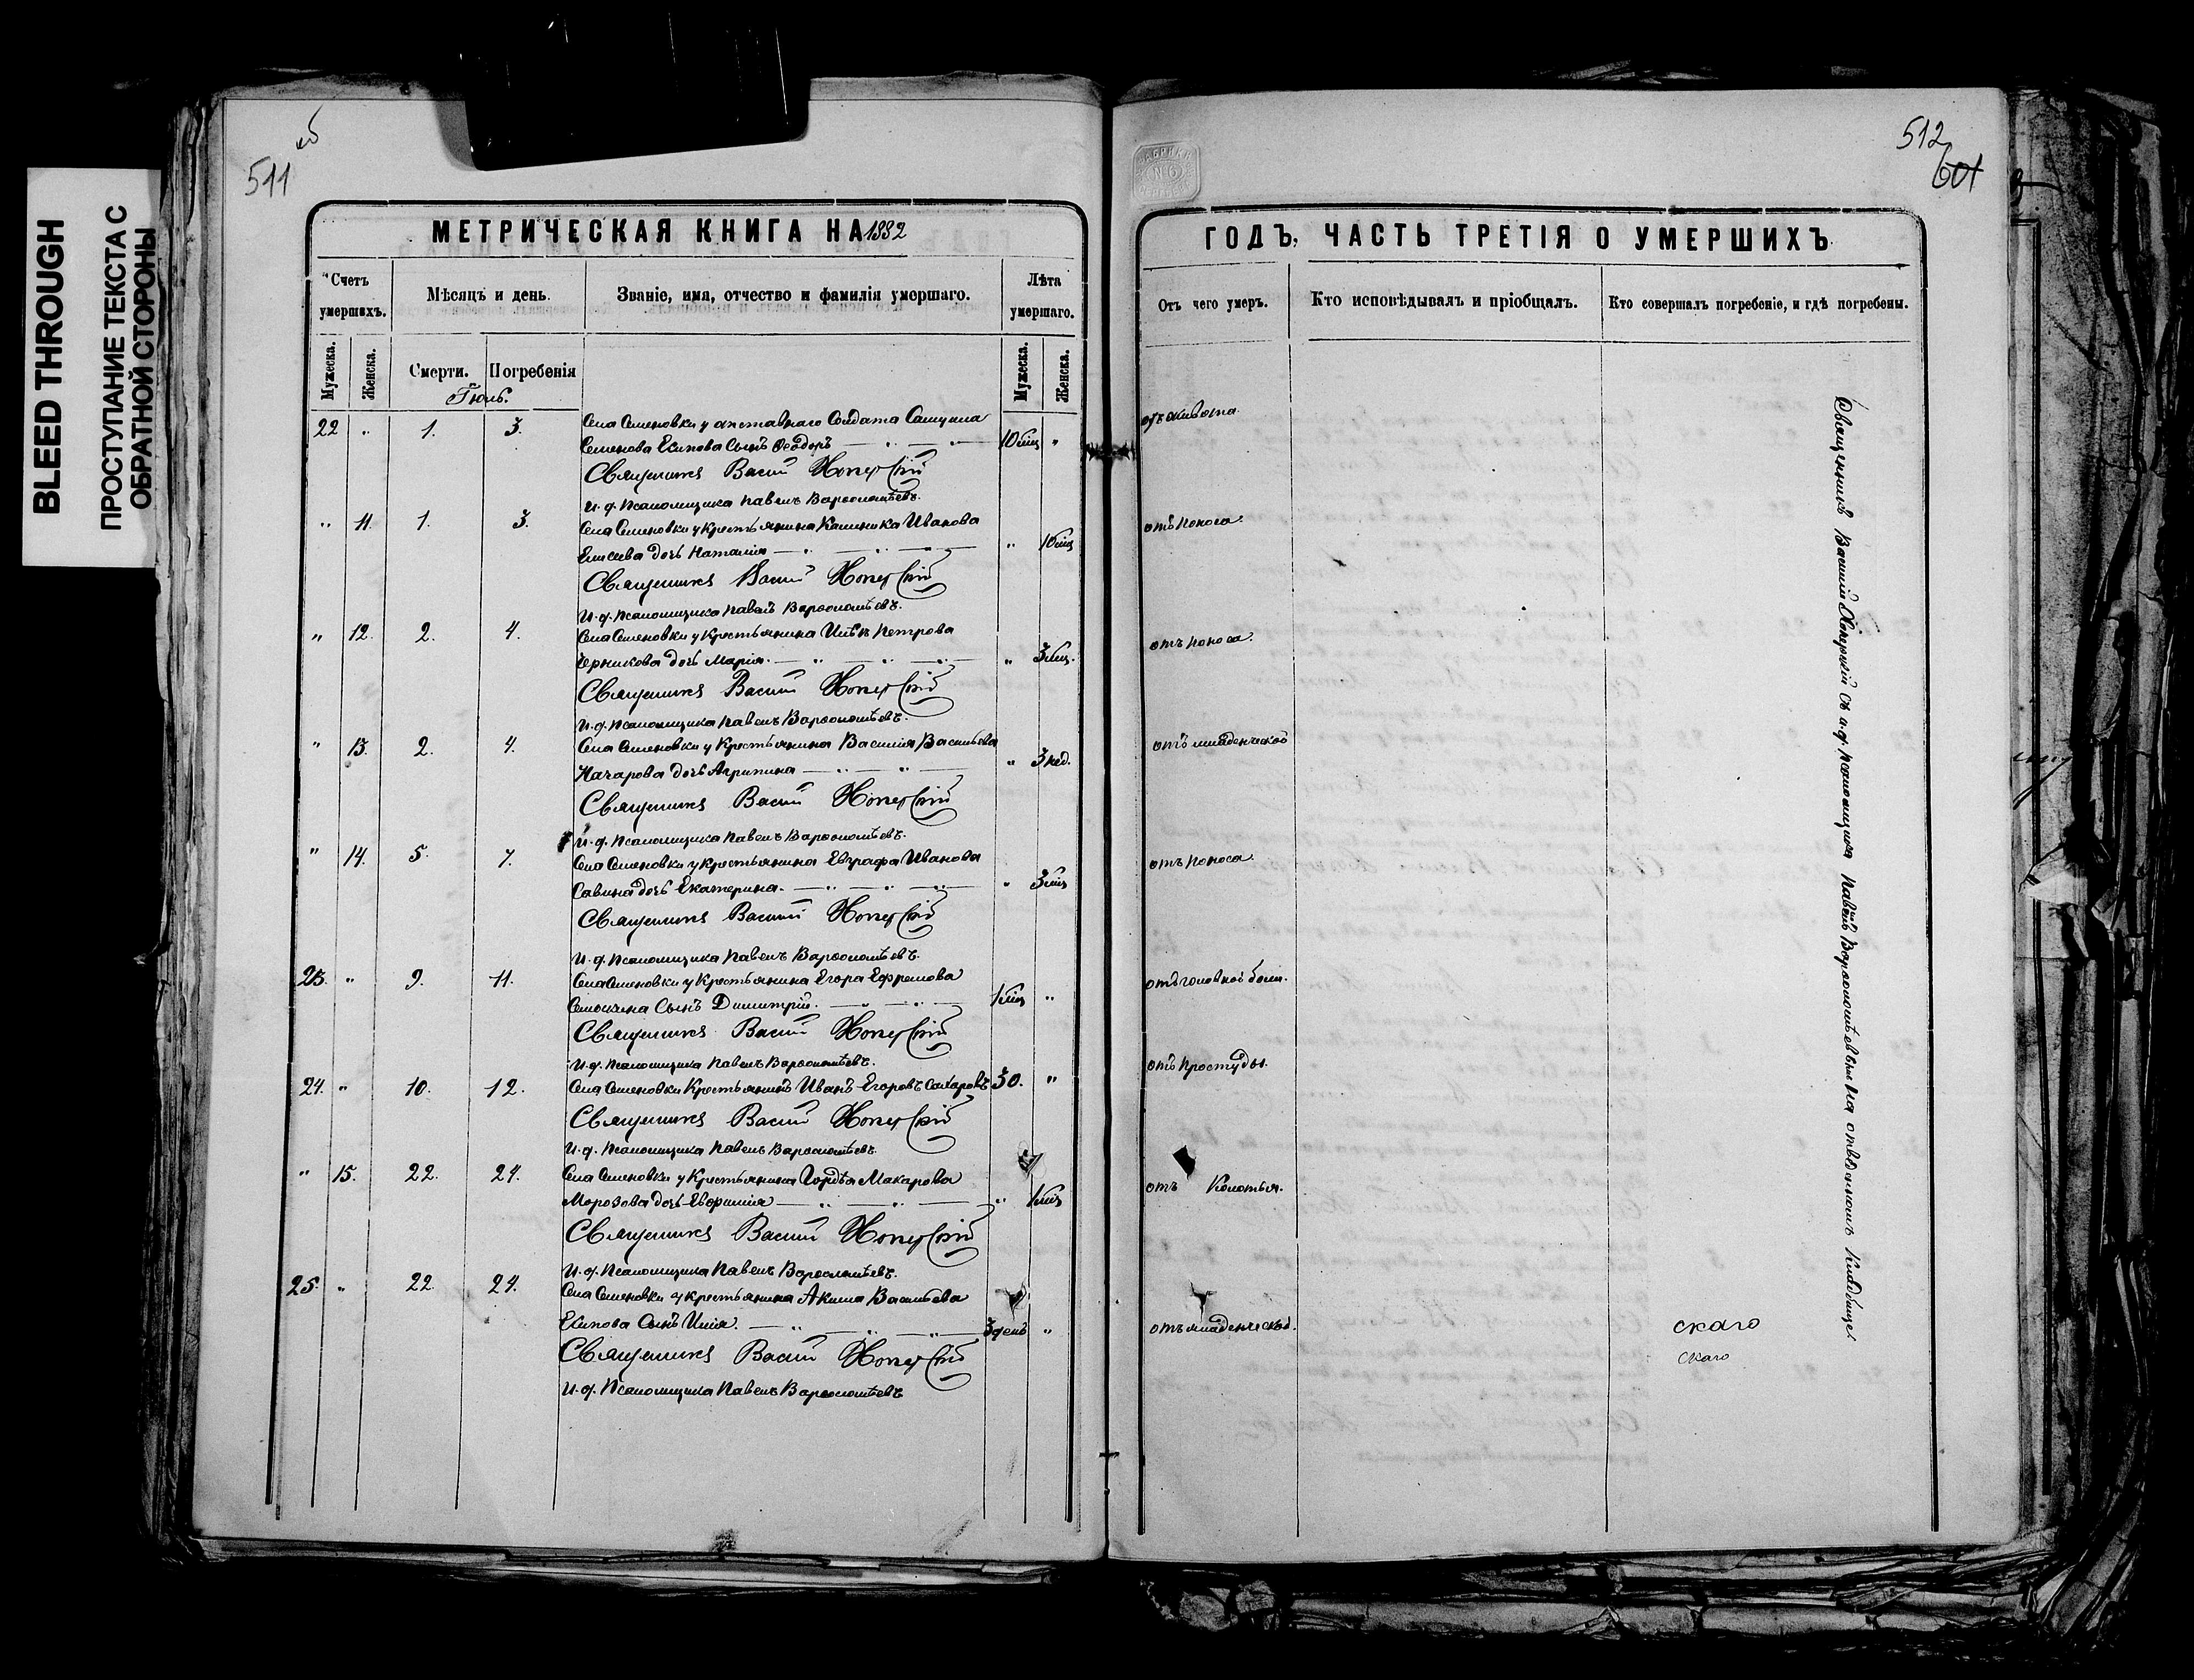 BLEED THROUGH
ПРОСТУПАНИЕ ТЕКСТА С
ОБРАТНОЙ СТОРОНЫ
511 об
МЕТРИЧЕСКАЯ КНИГА НА 1882
Счетъ умершихъ.
Мѣсяцъ и день.
Званіе, имя, отчество и фамилія умершаго.
Лѣта умершаго.
Мужеска.
Женска.
Смерти.
Погребенія
Мужеска.
Женска.
Іюль.
22 " 1. 3. Села Семеновки у отставнаго Солдата Самуила
Семенова Есипова Сынъ Феодоръ 10 мѣц "
Священникъ Василій Хоперскій
И. д. Псаломщика Павелъ Варѳоломѣевъ.
" 11. 1. 3. Села Семеновки у Крестьянина Калиника Иванова
Елисеева дочь Наталія " 10 мѣц
Священникъ Василій Хоперскій
И. д. Псаломщика Павелъ Варѳоломѣевъ.
" 12. 2. 4. Села Семеновки у Крестьянина Петрова
Черникова дочь Марія. " 3 мѣц.
Священникъ Василій Хоперскій
И. д. Псаломщика Павелъ Варѳоломѣевъ.
" 13. 2. 4. Села Семеновки у Крестьянина Василія Васильева
Качарова дочь Агрипина " 3 нед.
Священникъ Василій Хоперскій
И. д. Псаломщика Павелъ Варѳоломѣевъ.
" 14. 5. 7. Села Семеновки у Крестьянина Евграфа Иванова
Савина дочь Екатерина. " 3 мѣц
Священникъ Василій Хоперскій
И. д. Псаломщика Павелъ Варѳоломѣевъ.
23. " 9. 11. Села Семеновки у Крестьянина Егора Ефремова
Сынъ Димитрій. 1 мѣц "
Священникъ Василій Хоперскій
И. д. Псаломщика Павелъ Варѳоломѣевъ.
24. " 10. 12. Села Семеновки Крестьянинъ Иванъ Егоровъ Сахаровъ 30. "
Священникъ Василій Хоперскій
И. д. Псаломщика Павелъ Варѳоломѣевъ.
" 15. 22. 24. Села Семеновки у Крестьянина Гордѣя Макарова
Морозова дочь Евфимія " 1 мѣц
Священникъ Василій Хоперскій
И. д. Псаломщика Павелъ Варѳоломѣевъ.
25. " 22. 24. Села Семеновки у Крестьянина Акима Васильева
Есипова Сынъ Илія. 3 день "
Священникъ Василій Хоперскій
И. д. Псаломщика Павелъ Варѳоломѣевъ
512
601
ФАБРИКА
№6
ГОДЪ, ЧАСТЬ ТРЕТІЯ О УМЕРШИХЪ
Отъ чего умеръ.
Кто исповѣдывалъ и пріобщалъ.
Кто совершалъ погребеніе, и гдѣ погребены.
отъ живота.
отъ поноса.
отъ поноса.
отъ младенческой
отъ поноса.
отъ головной боли.
отъ простуды.
отъ Колотья.
отъ младенческой.
Священникъ Василій Хоперскій съ и. д. Псаломщика Павелъ Варѳоломѣевымъ на отведенномъ Кладбище
скаго
скаго